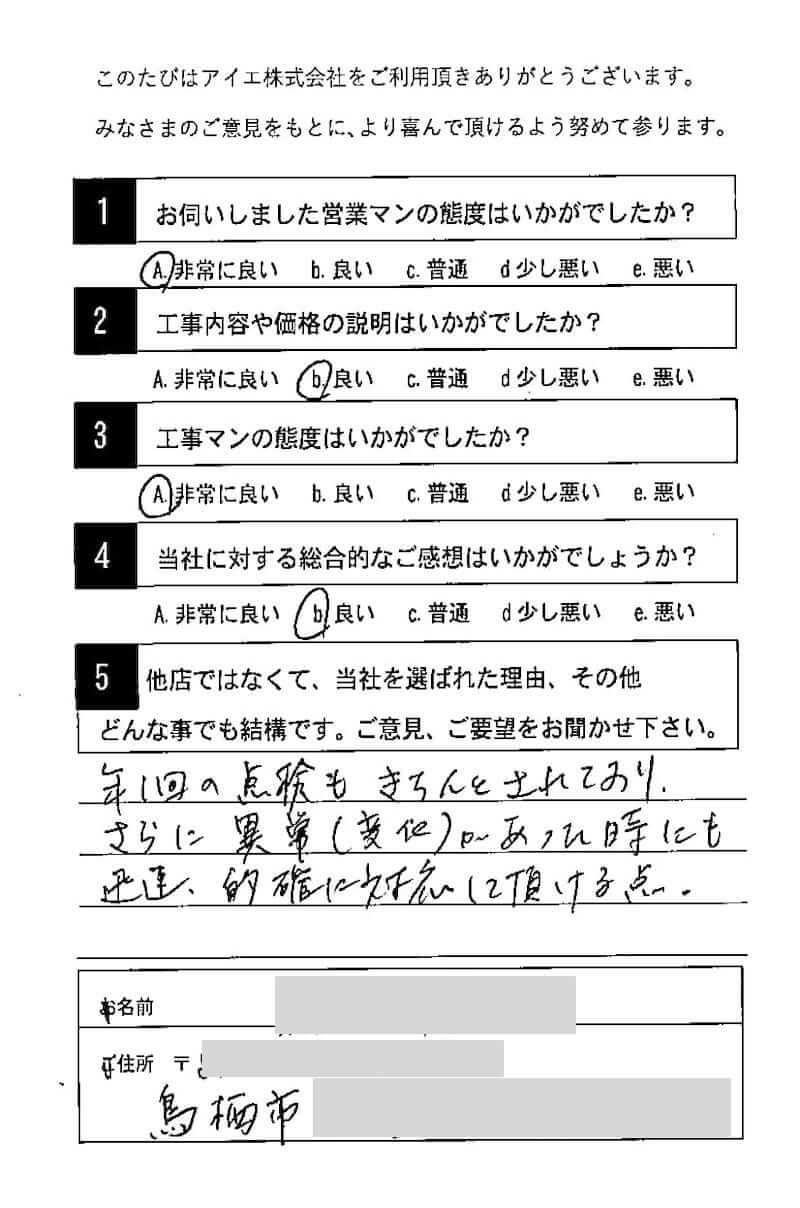 このたびはアイエ株式会社をご利用頂きありがとうございます。
みなさまのご意見をもとに、より喜んで頂けるよう努めて参ります。
1 お伺いしました営業マンの態度はいかがでしたか？
A. 非常に良い b. 良い c. 普通 d 少し悪い e. 悪い
2 工事内容や価格の説明はいかがでしたか？
A. 非常に良い b. 良い c. 普通 d 少し悪い e. 悪い
3 工事マンの態度はいかがでしたか？
A. 非常に良い b. 良い c. 普通 d 少し悪い e. 悪い
4 当社に対する総合的なご感想はいかがでしょうか？
A. 非常に良い b. 良い c. 普通 d 少し悪い e. 悪い
5 他店ではなくて、当社を選ばれた理由、その他
どんな事でも結構です。ご意見、ご要望をお聞かせ下さい。
年1回の点検もきちんとされており、
さらに異常(変化)があった時にも
迅速、的確に対応して頂ける点。
お名前
ご住所 〒
鳥栖市